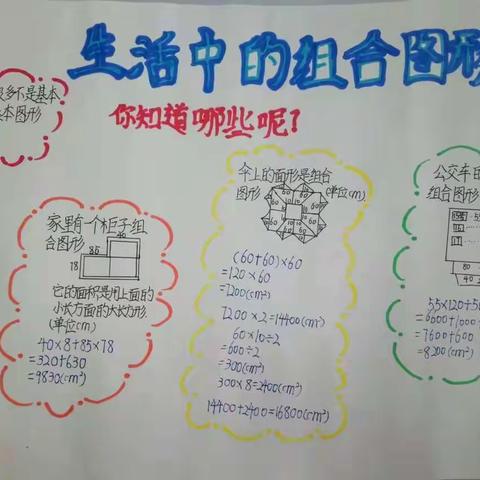 生活中的组合图形
你知道哪些呢？
多不是基本
本图形
家里有一个柜子组
合图形
40
85
18
它的面积是用上面的
小长方面的大长方形.
(单位cm)
40×8+85×78
=320+630
=9830(cm²)
伞上的面形是组合
图形
(单位cm)
(60+60)×60
=120×60
=7200(cm²)
7200×2=14400(cm²)
60×10÷2
=600÷2
=300(cm²)
300×8=2400(cm²)
14400+2400=16800(cm²)
公交车的
组合图形
80
40
55×120+50
=6600+1000+
=7600+600
=8200(cm²)